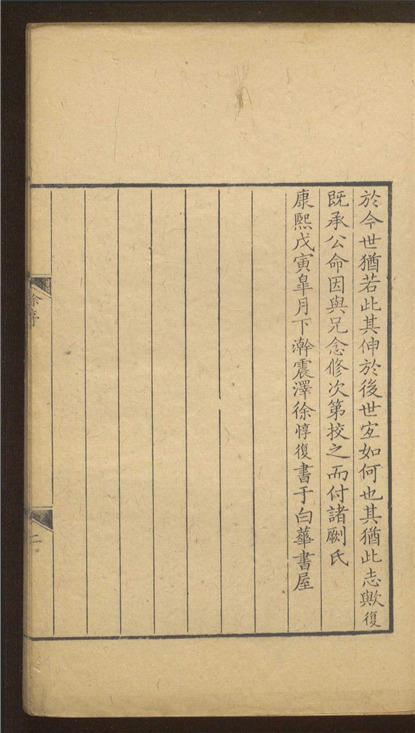 於今世猶若此其伸於後世宜如何也其猶此志歟復
既承公命因與兄念修次第挍之而付諸劂氏
康熙戊寅皐月下澣震澤徐惇復書于白華書屋
徐序
二